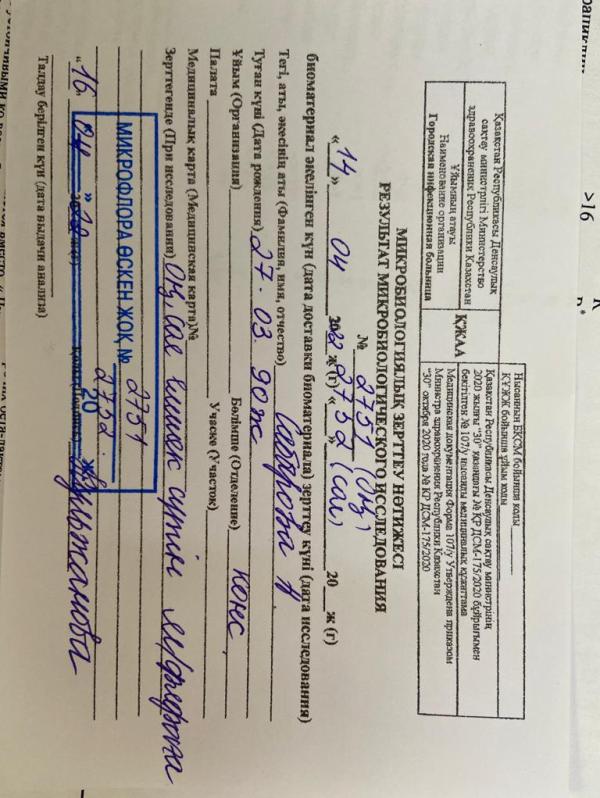 >16
Қазақстан Республикасы Денсаулық
сақтау министрлігі Министерство
здравоохранения Республики Казахстан
Ұйымның атауы
Наименование организации
Городская инфекционная больница
ҚЖАА
Нысанның БҚСЖ бойынша коды
ҚҰЖЖ бойынша ұйым коды
Қазақстан Республикасы Денсаулық сақтау министрінің
2020 жылғы "30" қазандағы № ҚР ДСМ-175/2020 бұйрығымен
бекітілген № 107/у нысанды медициналық құжаттама
Медицинская документация Форма 107/у Утверждена приказом
Министра здравоохранения Республики Казахстан
"30" октября 2020 года № ҚР ДСМ-175/2020
МИКРОБИОЛОГИЯЛЫҚ ЗЕРТТЕУ НӘТИЖЕСІ
РЕЗУЛЬТАТ МИКРОБИОЛОГИЧЕСКОГО ИССЛЕДОВАНИЯ
№ 2751 (оң)
"14" 04 2022 ж (г) " " 2752 (сол) 20 ж (г)
биоматериал әкелінген күн (дата доставки биоматериала) зерттеу күні (дата исследования)
Тегі, аты, әкесінің аты (Фамилия, имя, отчество)
Туған күні (Дата рождения) 27.03.90ж
Ұйым (Организация) Бөлімше (Отделение) конс
Палата Участке (Участок)
Медициналық карта (Медицинская карта)№
Зерттегенде (При исследовании) Оң, сол емшек сүтін
МИКРОФЛОРА ӨСКЕН ЖОҚ № 2751
2752
20 ж
"16" 04
Талдау берілген күн (дата выдачи анализа)